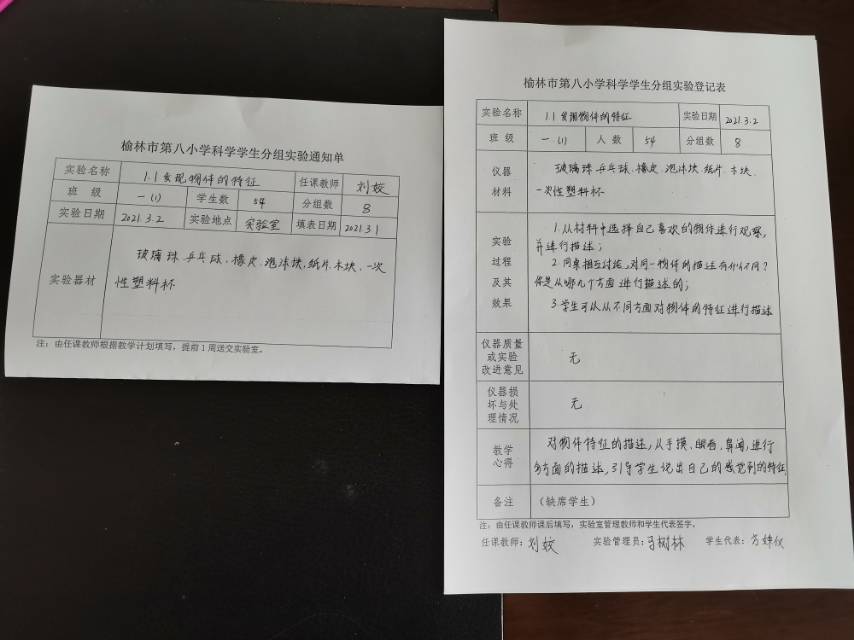 榆林市第八小学科学学生分组实验通知单
实验名称 1.1发现物体的特征 任课教师 刘姣
班 级 一(1) 学生数 54 分组数 8
实验日期 2021.3.2 实验地点 实验室 填表日期 2021.3.1
实验器材
玻璃珠.乒乓球.橡皮.泡沫块,纸片.木块.一次
性塑料杯
注:由任课教师根据教学计划填写,提前1周送交实验室。
榆林市第八小学科学学生分组实验登记表
实验名称 1.1发现物体的特征 实验日期 2021.3.2
班 级 一(1) 人 数 54 分组数 8
仪器
材料
玻璃珠.乒乓球.橡皮.泡沫块.纸片.木块.
一次性塑料杯
实验
过程
及其
效果
1.从材料中选择自己喜欢的物体进行观察,
并进行描述;
2.同桌相互讨论,对同一物体的描述有什么不同?
你是从哪几个方面进行描述的;
3.学生可以从不同方面对物体的特征进行描述
仪器质量
或实验
改进意见
无
仪器损
坏与处
理情况
无
教学
心得
对物体特征的描述,从手摸、眼看、鼻闻,进行
多方面的描述,引导学生说出自己的感觉到的特征
备注 (缺席学生)
注:由任课教师课后填写,实验室管理教师和学生代表签字。
任课教师:刘姣 实验管理员:马树林 学生代表: